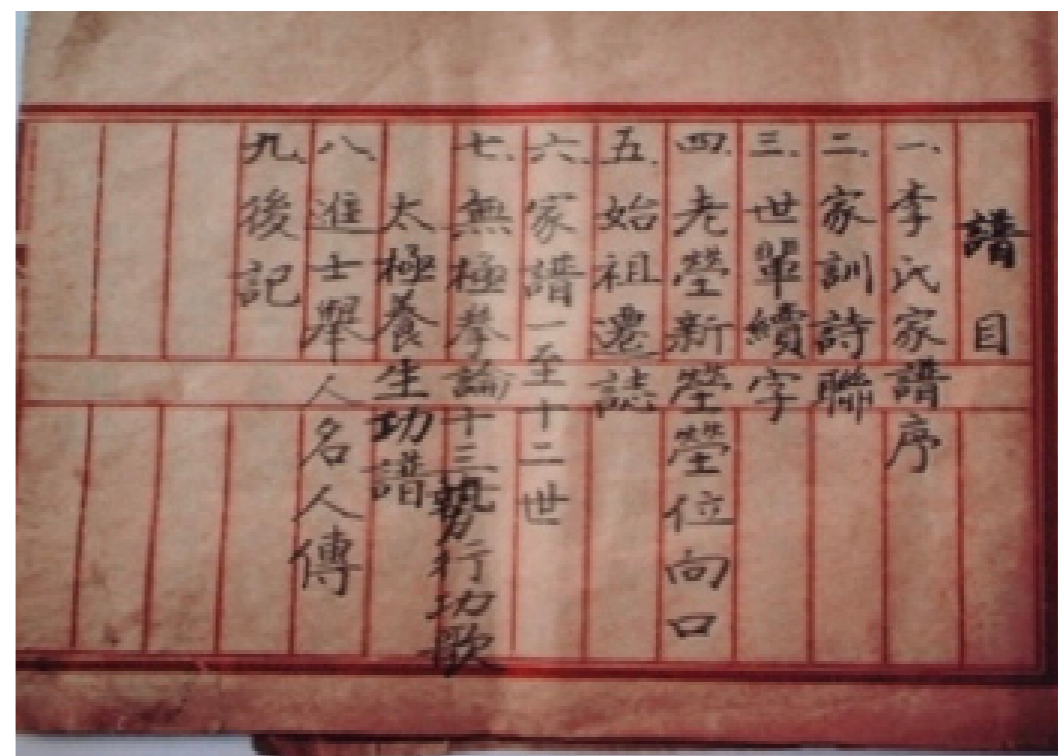 譜目
一、李氏家譜序
二.家訓詩聯
三.世輩續字
四.老塋新塋塋位向口
五.始祖遷誌
六.家譜一至十二世
七.無極拳論十三勢行功歌
太極養生功譜
八、進士舉人名人傳
九.後記